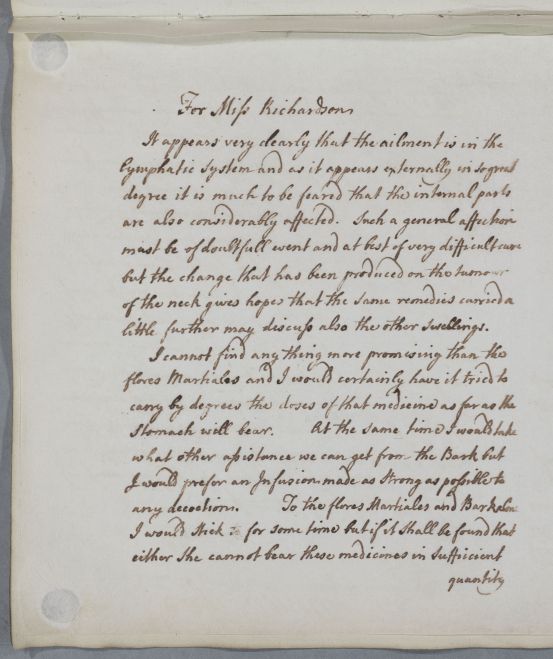 For Miss Richardson
It appears very clearly that the ailment is in the
Lymphatic System and as it appears externally in so great
degree it is much to be feared that the internal parts
are also considerably affected. Such a general affection
must be of doubtfull event and at best of very difficult cure
but the change that has been produced on the tumour
of the neck gives hopes that the same remedies carried a
little further may discuss also the other swellings.
I cannot find any thing more promising than the
flores Martiales and I would certainly have it tried to
carry by degrees the doses of that medicine as far as the
Stomach will bear. At the same time I would take
what other assistance we can get from the Bark but
I would prefer an Infusion made as Strong as possible to
any decoctions. To the flores Martiales and Bark alone
I would Stick for some time but if it shall be found that
either She cannot bear these medicines in Sufficient
quantity